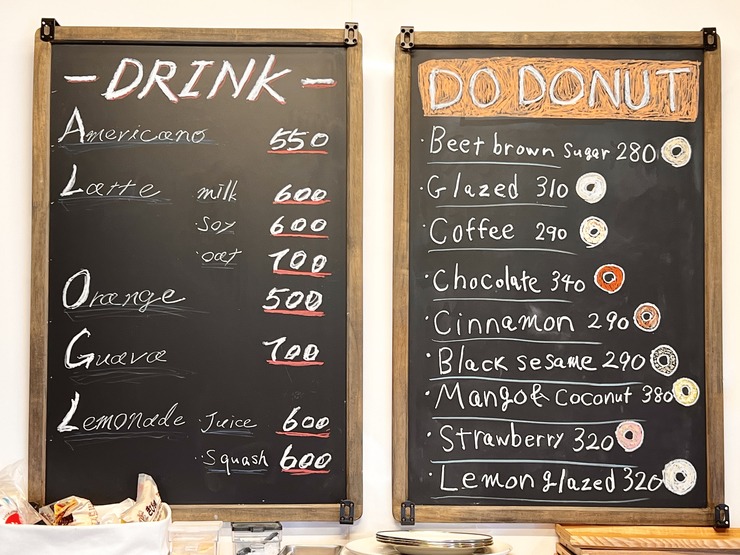 - DRINK -
Americano 550
Latte milk 600
·Soy 600
·oat 700
Orange 500
Guava 700
Lemonade Juice 600
·Squash 600
DO DONUT
·Beet brown Sugar 280
·Glazed 310
·Coffee 290
·Chocolate 340
·Cinnamon 290
·Black sesame 290
·Mango & Coconut 380
·Strawberry 320
·Lemon glazed 320